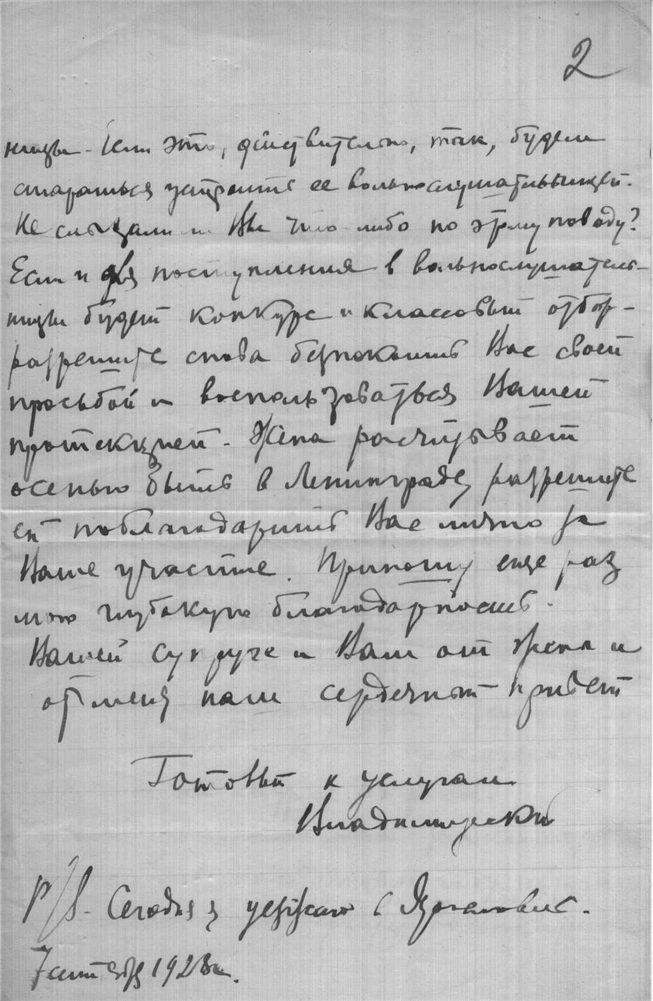 2
ницы. Если это, действительно, так, будем
стараться устроить ее вольнослушательницей.
Не слыхали ли Вы что-либо по этому поводу?
Если и для поступления в вольнослушатель-
ницы будет конкурс и классовый отбор -
разрешите снова беспокоить Вас своей
просьбой и воспользоваться Вашей
протекцией. Жена расчитывает
осенью быть в Ленинграде, разрешите
ей поблагодарить Вас лично за
Ваше участие. Приношу еще раз
мою глубокую благодарность.
Вашей супруге и Вам от жены и
от меня наш сердечный привет
Готовый к услугам
Владимирский
P/S. Сегодня уезжаю в
1928 г.